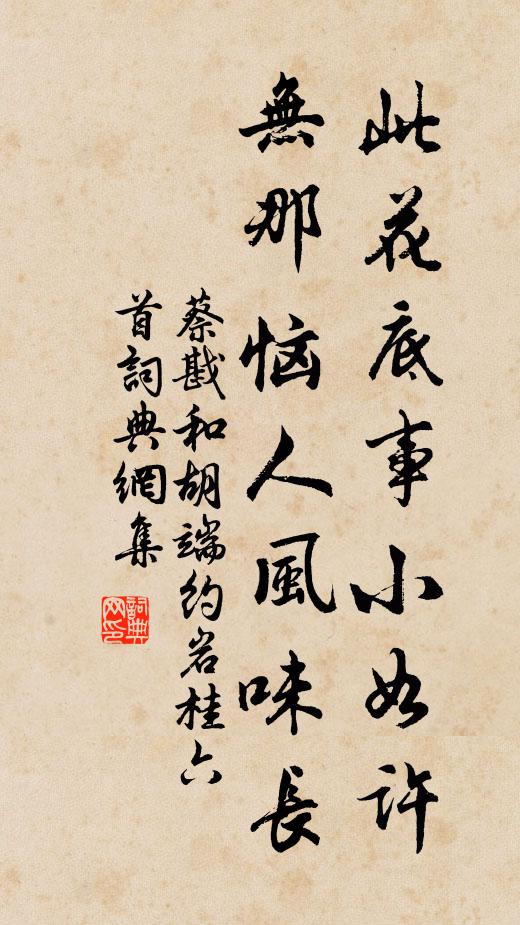 此花底事小如许
無那恼人風味長
蔡戡和胡端約岩桂六
首詞典網集
詞典
网印